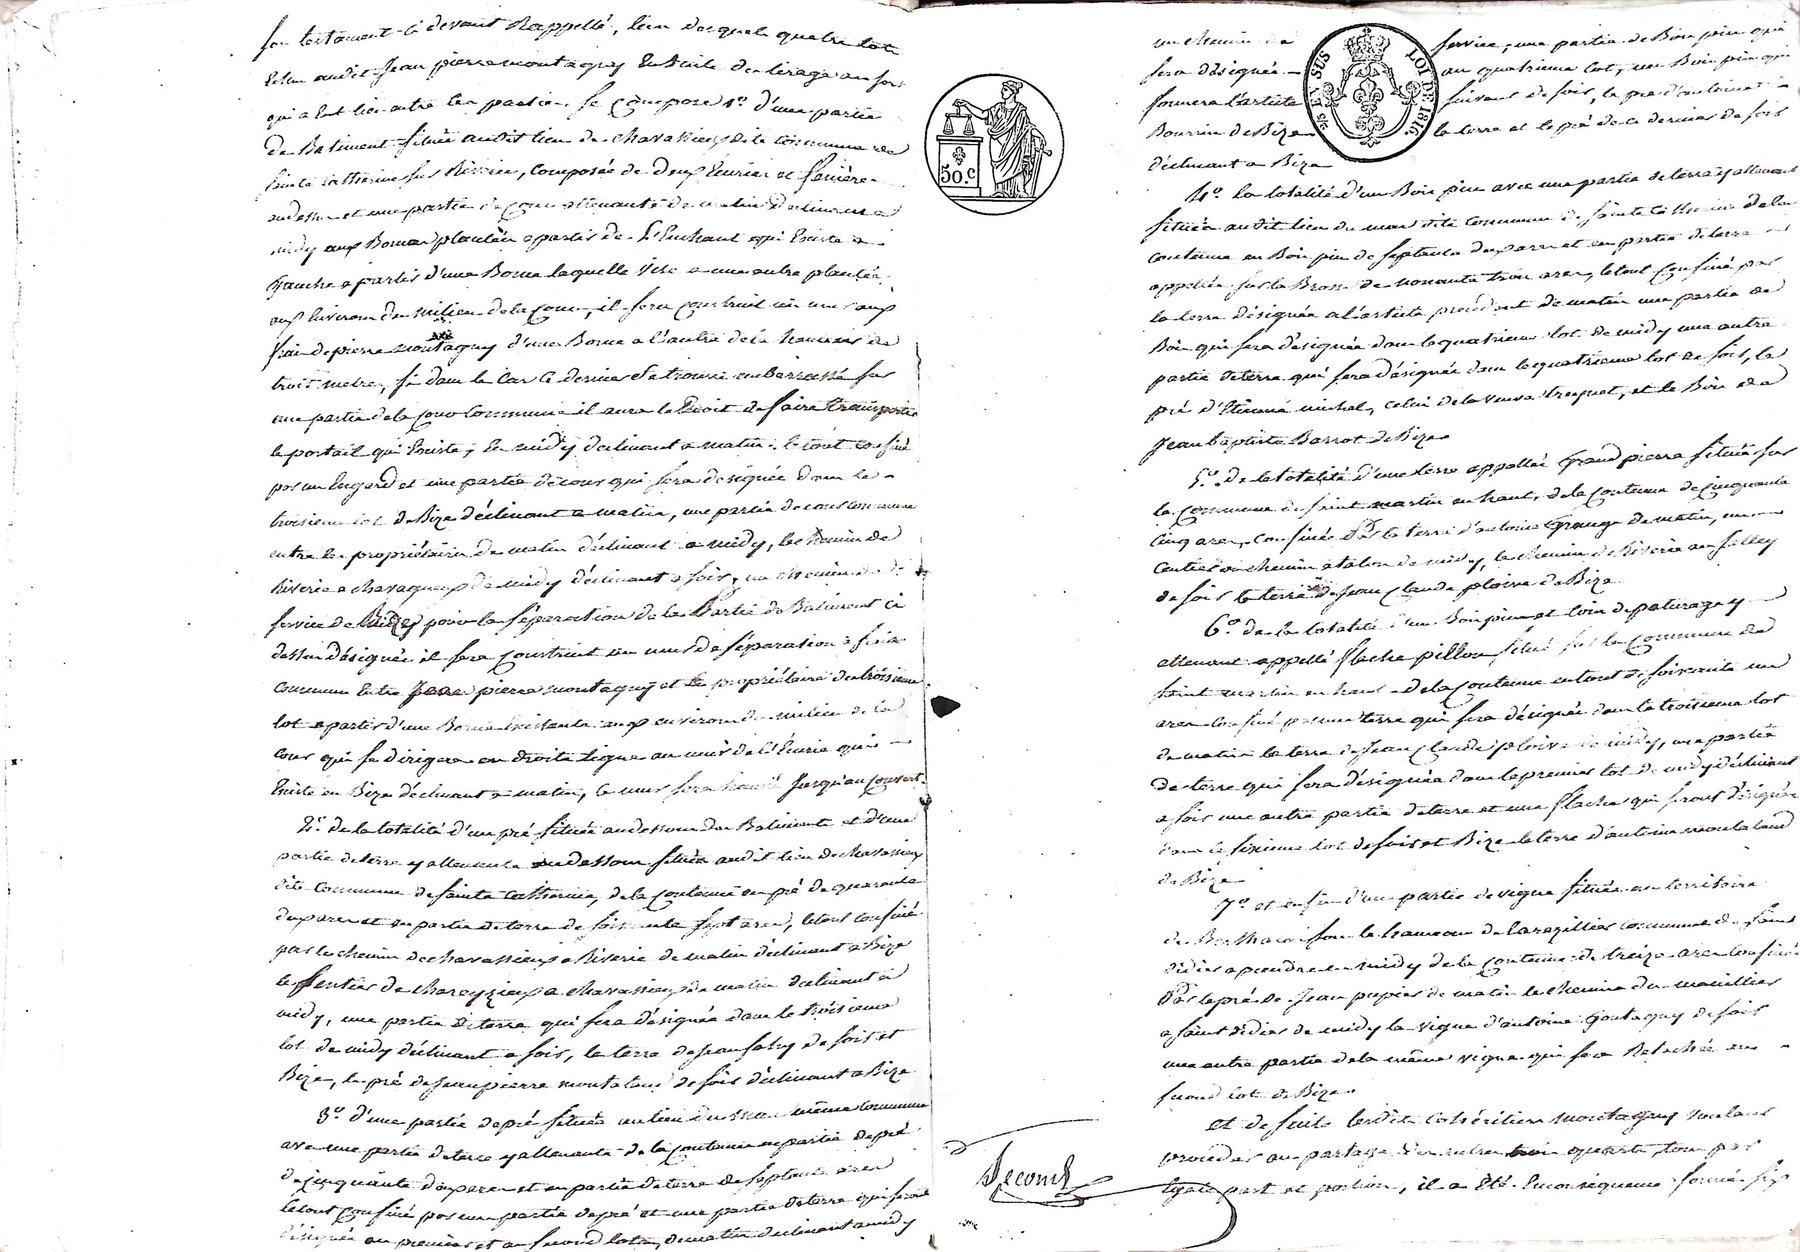 son testament ci devant Rappellé, l'un desquels quatre lots
Echu audit Jean pierre montagny Ensuite du tirage au sort
qui a Eut lieu entre les parties. Se Compose 1.º d'une partie
de Batiment située audit lieu de chavassieux dite commune de
Sainte Catherine sur Riverie, Composée de deux Ecuries et fenière
audessus et une partie de Cour attenante de matin declinant a
midy aux Bornes plantées a partir de L'Enchant qui Existe a
gauche a partir d'une Borne laquelle vise a une autre plantée
aux Environs du milieu de la Cour, il sera Construit un mur aux
frais de pierre montagny d'une Borne a l'autre de la hauteur de
trois metres, si dans le Cas Ce dernier se trouve embarrassé sur
une partie de la Cour Commune il aura le Droit de faire transporter
le portail qui Existe, en midy declinant a matin. le tout confiné
par un Engard et une partie de cour qui sera designée dans le
troisieme lot de Bize déclinant a matin, une partie de cour commune
entre les propriétaires de matin déclinant a midy, le chemin de
Riverie a chavagneux de midy déclinant a soir, un chemin de
service de Midy pour la séparation de la Partie de Batiment ci
dessus désignée il sera Construit un mur de séparation a frais
commun Entre Jean pierre montagny et le propriétaire du troisieme
lot a partir d'une Borne Existante aux environs du milieu de la
cour qui se dirigera en droite ligne au mur de l'Ecurie qui
Existe en Bize déclinant a matin, ce mur sera hauné Jusqu'au Couvert.
2.º de la totalité d'un pré située audessous des Batiments et d'une
partie de terre y attenante au dessous située audit lieu de chavassieux
dite commune de Sainte Catherine, de la Contenue en pré de quarante
deux ares et en partie de terre de soixante sept ares, le tout confiné
par le chemin de chavassieux a Riverie de matin déclinant a Bize
le sentier de chareyzieux a chavassieux de matin declinant à
midy, une partie de terre qui sera désignée dans le troisieme
lot de midy déclinant a soir, la terre de Jean de soir et
Bize, le pré de Jean pierre montaland de soir déclinant a Bize
3.º d'une partie de pré située au lieu du mas même commune
avec une partie de terre y attenante de la Contenue en partie de pré
de Cinquante deux ares et en partie de terre de septante ares
le tout confiné par une partie de pré et une partie de terre qui seront
désignés au premier et au second lots, de matin declinant a midy
50.C
Second
un chemin de service, une partie de Bois pins qui
sera désignée au quatrieme lot, un Bois pin qui
formera l'article suivant de soir, le pré d'antoine
Bourrin de Bize la terre et le pré de ce dernier de soir
déclinant a Bize
EN SUS
LOI DE 1816.
4.º la totalité d'un Bois pin avec une partie de terre y attenante
située audit lieu du mas dite commune de Sainte Catherine de la
contenue en Bois pin de septante deux ares et en partie de terre
appellée sur la Brosse de nonante trois ares, le tout Confiné par
la terre désignée a l'article precedent de matin une partie de
Bois qui sera désignée dans le quatrieme lot de midy une autre
partie de terre qui sera désignée dans le quatrieme lot de soir, le
pré d'Etienne michel, celui de la veuve treynet, et le Bois de
Jean baptiste Barrot de Bize
5.º de la totalité d'une terre appellée Grand pierre située sur
la Commune de Saint martin en haut, de la Contenue de Cinquante
Cinq ares, Confinée Par la terre d'antoine Grange de matin, un
sentier ou chemin a talon de midy, le chemin de Riverie au
de soir la terre de Jean Claude ploivre de Bize
6.º de la totalité d'un Bois pin et coin de paturage y
attenant appellé flache pillon, situé sur la Commune de
Saint martin en haut de la Contenue en tout de soixante un
ares Confiné par une terre qui sera désignée dans le troisieme lot
de matin la terre de Jean Claude ploivre de midy, une partie
de terre qui sera désignée dans le premier lot de midy déclinant
a soir une autre partie de terre et une flache qui seront désignée
dans le sixieme lot de soir et Bize la terre d'antoine montaland
de Bize
7.º et enfin d'une partie de vigne située au territoire
de sous le hameau de commune de Saint
didier a prendre en midy de la Contenue de treize ares Confiné
Par le pré de Jean pupier de matin le chemin du
a Saint didier de midy la vigne d'antoine Goutagny de soir
une autre partie de la même vigne qui sera Relachée au
second lot de Bize.
et de suite lesdits Cohéritiers montagny voulant
proceder au partage des autres trois quarts, tous par
Egale part et portion, il a Eté Enconséquence formé six